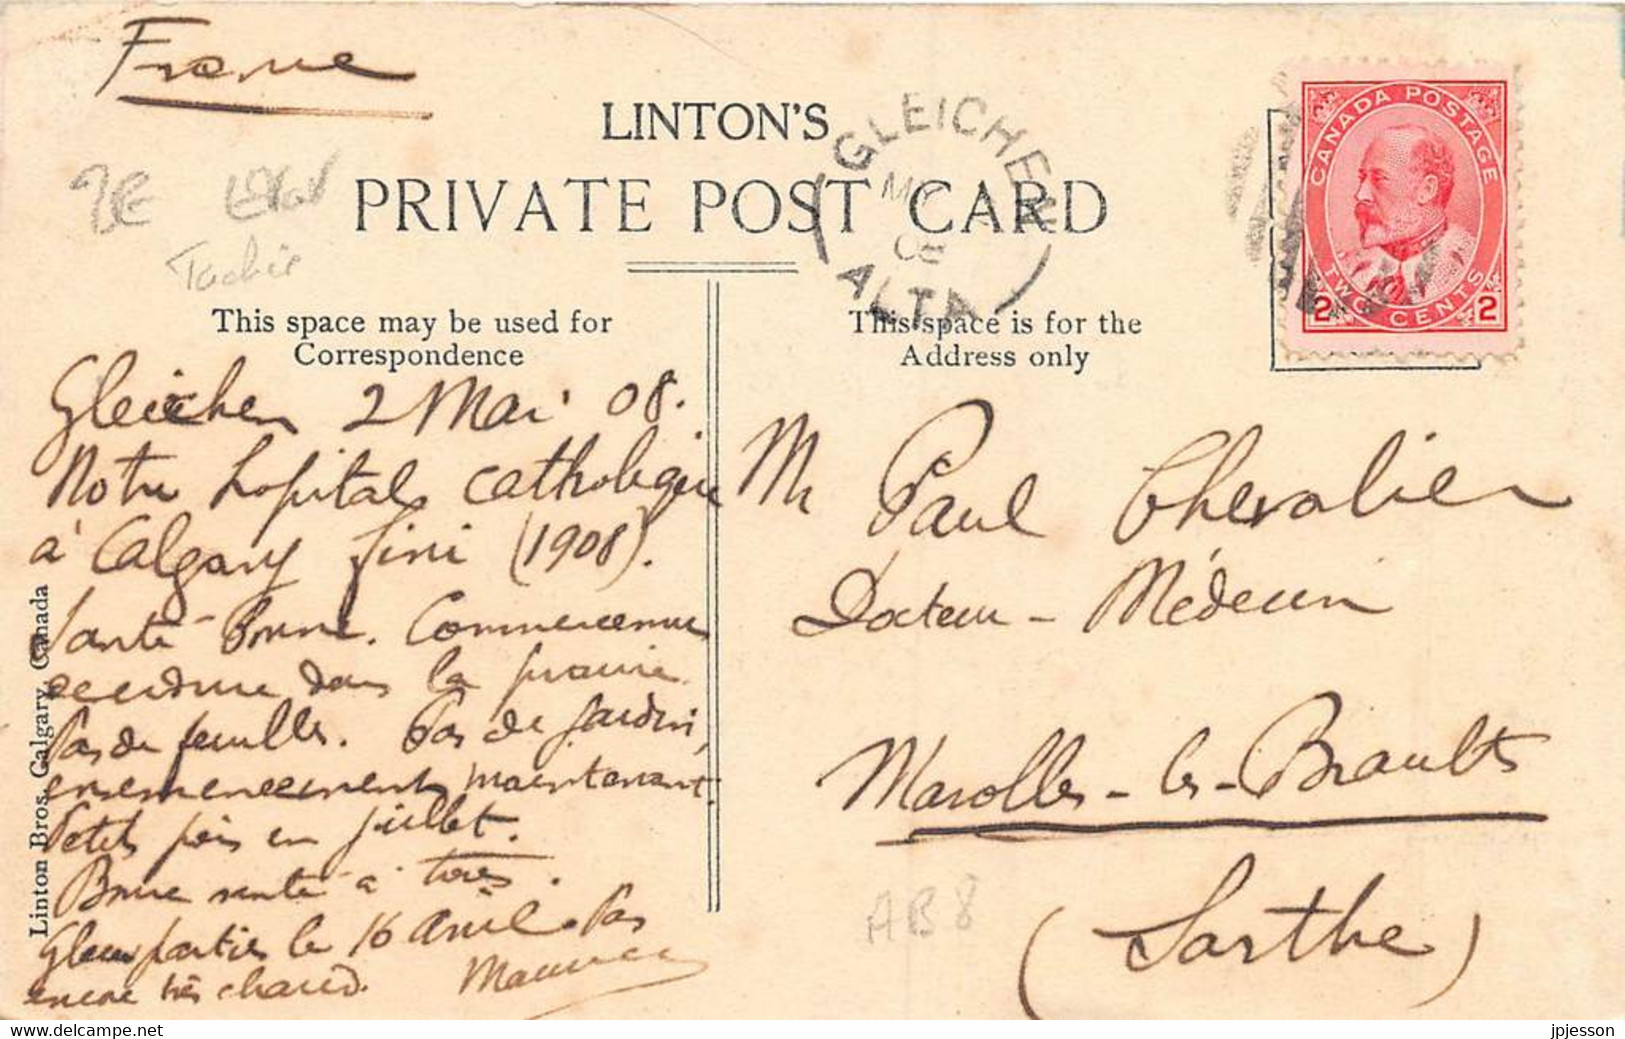 France
LINTON'S
PRIVATE POST CARD
GLEICHEN
ALTA
CANADA POSTAGE
2 TWO CENTS 2
This space may be used for
Correspondence
This space is for the
Address only
Gleichen 2 Mai 08.
Notre hopital catholique
à Calgary fini (1908).
Santé Bonne. Commencement
verdure dans la prairie.
Pas de feuilles. Pas de jardin,
ensemencement maintenant.
Petits pois en juillet.
Bonne santé à tous.
Glace partie le 16 avril. Pas
encore très chaud.
Mr Paul Chevalier
Docteur - Médecin
Marolles-les-Braults
(Sarthe)
Linton Bros, Calgary, Canada
AB 8
jpjesson